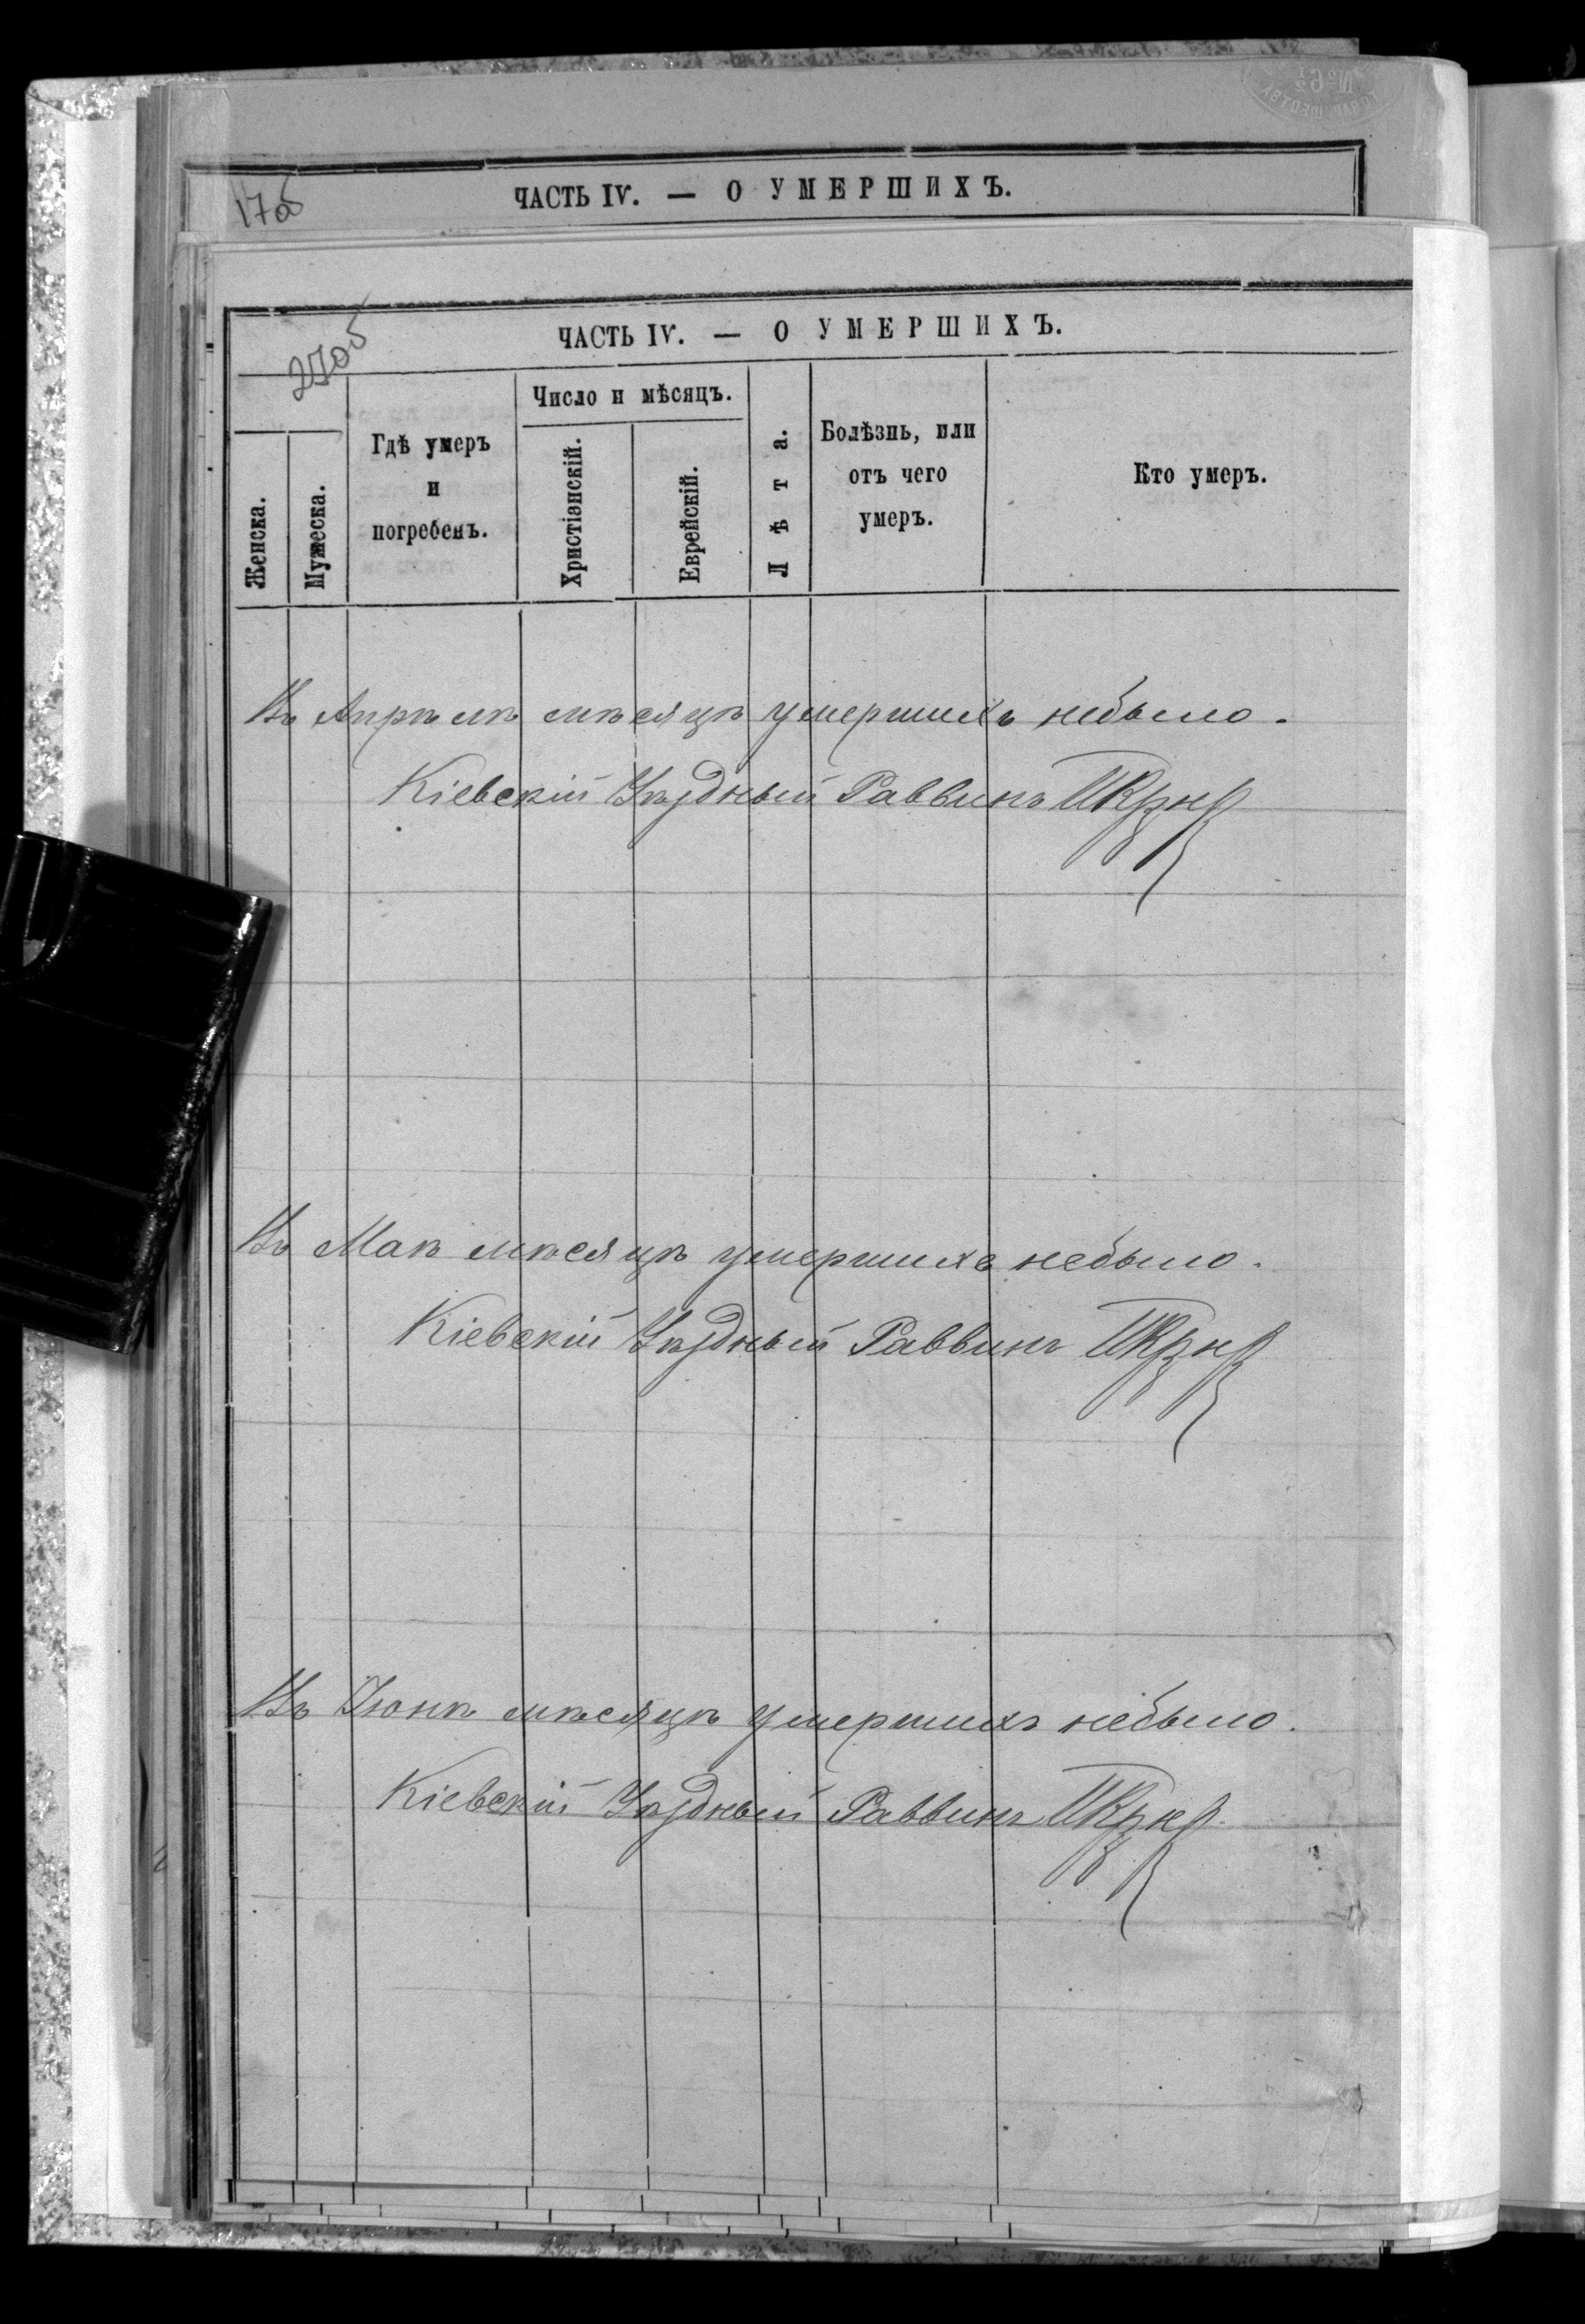 17об
ЧАСТЬ IV. — О УМЕРШИХЪ.
270об
ЧАСТЬ IV. — О УМЕРШИХЪ.
Женска.
Мужеска.
Гдѣ умеръ
и
погребенъ.
Число и мѣсяцъ.
Христіанскій.
Еврейскій.
Лѣта.
Болѣзнь, или
отъ чего
умеръ.
Кто умеръ.
Въ Апрѣлѣ мѣсяцѣ умершихъ небыло.
Кіевскій Уѣздный Раввинъ
Въ Маѣ мѣсяцѣ умершихъ небыло.
Кіевскій Уѣздный Раввинъ
Въ Іюнѣ мѣсяцѣ умершихъ небыло.
Кіевскій Уѣздный Раввинъ